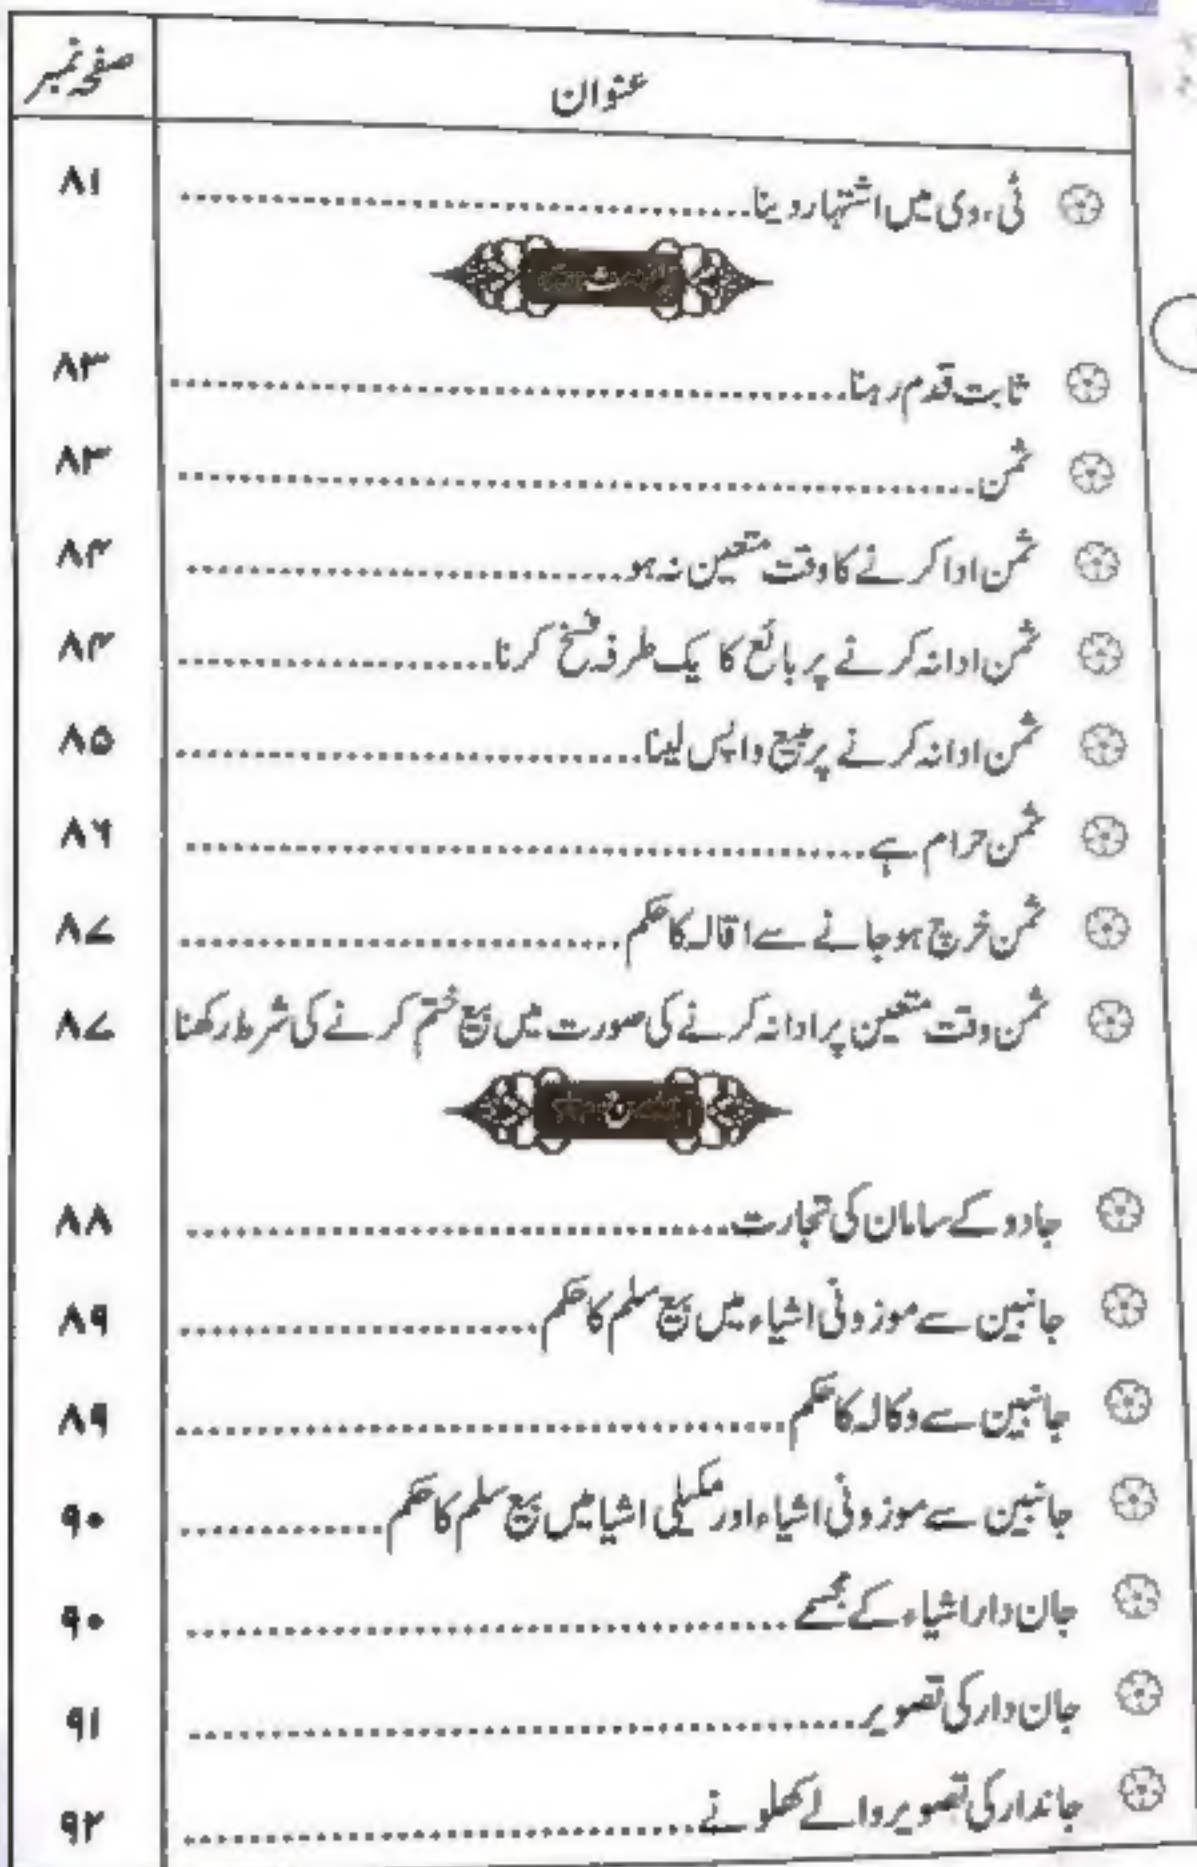 عنوان صفحہ نمبر
ٹی، وی میں اشتہار دینا.................................... ۸۱
ث
ثابت قدم رہنا.................................... ۸۳
ثمن.................................... ۸۳
ثمن ادا کرنے کا وقت متعین نہ ہو.................................... ۸۴
ثمن ادا نہ کرنے پر بائع کا یک طرفہ فسخ کرنا.................................... ۸۴
ثمن ادا نہ کرنے پر مبیع واپس لینا.................................... ۸۵
ثمن حرام ہے.................................... ۸۶
ثمن خرچ ہو جانے سے اقالہ کا حکم.................................... ۸۷
ثمن وقت متعین پر ادا نہ کرنے کی صورت میں بیع ختم کرنے کی شرط رکھنا ۸۷
جادو کے سامان کی تجارت.................................... ۸۸
جانبین سے موزونی اشیاء میں بیع سلم کا حکم.................................... ۸۹
جانبین سے وکالہ کا حکم.................................... ۸۹
جانبین سے موزونی اشیاء اور مکیلی اشیا میں بیع سلم کا حکم............ ۹۰
جان دار اشیاء کے مجسمے.................................... ۹۰
جان دار کی تصویر.................................... ۹۱
جاندار کی تصویر والے کھلونے.................................... ۹۲